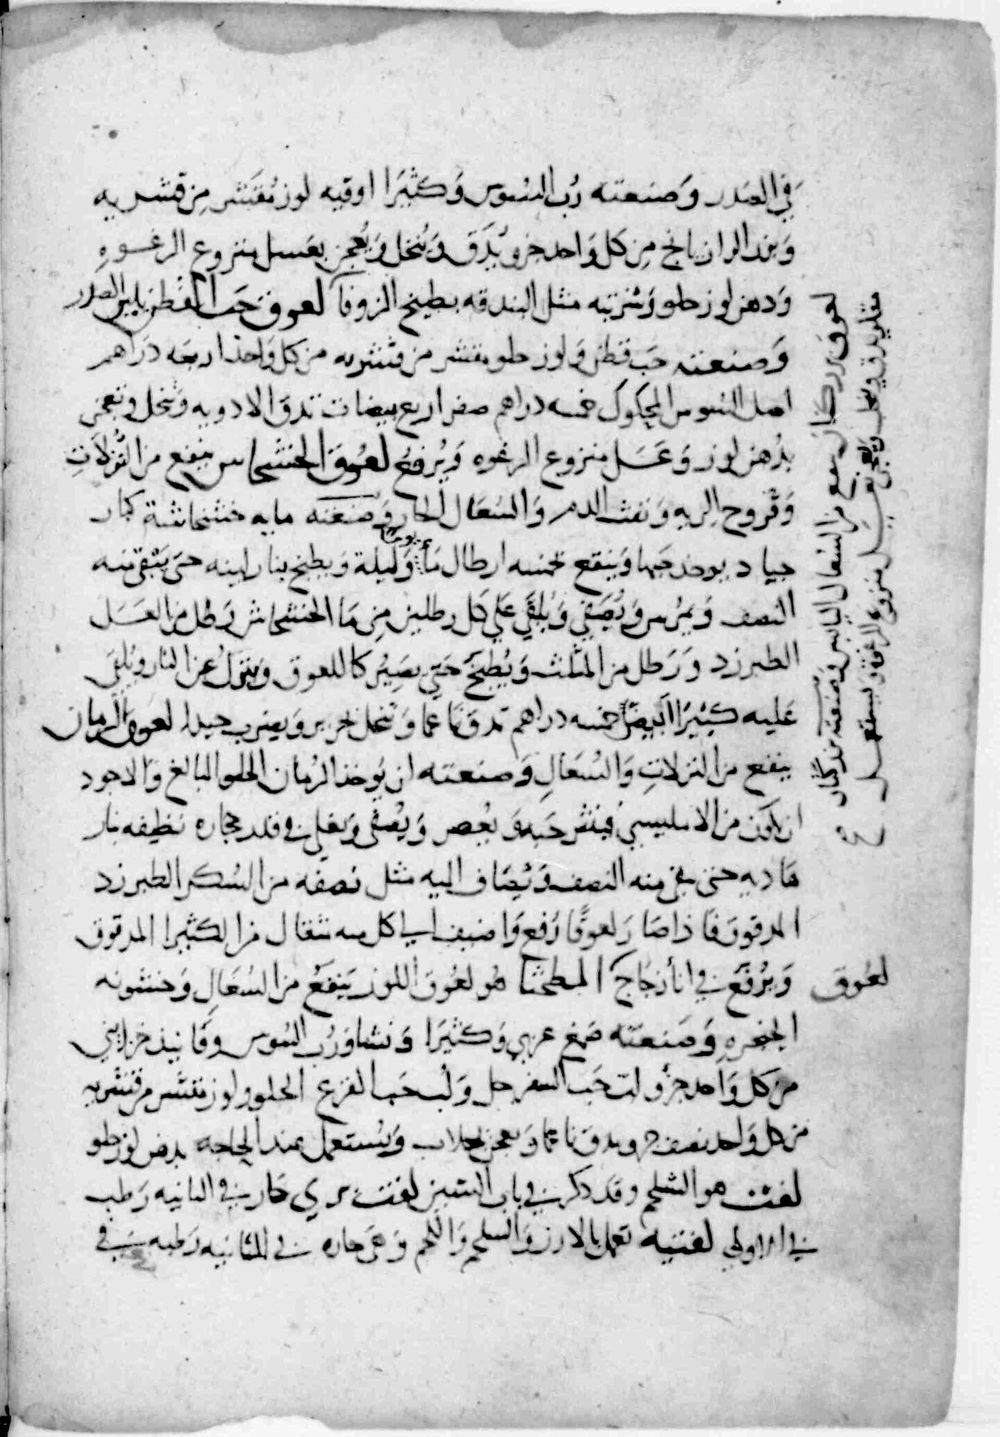 في الصدر وصنعته رب السوس وكثيرا اوقيه لوز مقشر من قشريه
وبزر الرازيانج من كل واحد جزو يدق وينخل ويعجن بعسل منزوع الرغوه
ودهن لوز حلو وشربته مثل البندقه بطبيخ الزوفا لعوق حب القطن يلين الصدر
وصنعته حب قطن ولوز حلو مقشر من قشريه من كل واحد اربعه دراهم
اصل السوس المحكوك خمسه دراهم صفر اربع بيضات تدق الادويه وتنخل وتعجن
بدهن لوز وعسل منزوع الرغوه ويرفع لعوق الخشخاش ينفع من النزلات
وقروح الريه ونفث الدم والسعال الحار وصنعته مايه خشخاشة كبار
جياد يوخذ حبها وينقع بخمسه ارطال ما يوما وليلة ويطبخ بنار لينه حتى يتبقى منه
النصف ويمرس ويصفي ويلقي علي كل رطلين من ما الخشخاش رطل من العسل
الطبرزد ورطل من المثلث ويطبخ حتي يصير كاللعوق وينزل عن النار ويلقى
عليه كثيرا ابيض خمسه دراهم تدق ناعما وتنخل بحرير ويضرب جيدا لعوق الرمان
ينفع من النزلات والسعال وصنعته ان يوخذ الرمان الحلو البالغ والاجود
ان يكون من الامليسي فينثر حبه ويعصر ويصفى ويغلى في قدر حجاره نظيفه بنار
هاديه حتى يبقى منه النصف ويضاف اليه مثل نصفه من السكر الطبرزد
المدقوق فاذا صار لعوقا رفع واضيف الي كل منه مثقال من الكثيرا المدقوق
ويرفع في انا زجاج المطحثا هو لعوق اللوز ينفع من السعال وخشونه
لعوق
الحنجره وصنعته صمغ عربي وكثيرا ونشا ورب السوس وفانيذ خزايني
من كل واحد جزو لب حب السفرجل ولب حب القرع الحلو ولوز مقشر من قشريه
من كل واحد نصف جزو يدق ناعما ويعجن بجلاب ويستعمل عند الحاجه بدهن لوز حلو
لفت هو الشلجم وقد ذكر في باب الشين لفت بري حار في الثانيه رطب
في الاولي لفتيه تعمل بالارز والسلجم واللحم وهي حاره في الثانيه رطبه في
لعوق بزر كتان ينفع من السعال اليابس وصنعته بزر كتان
مقلو يدق وينخل ويعجن بعسل منزوع الرغوه ويستعمل